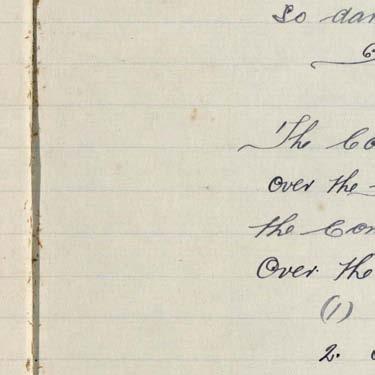 So dar
6.
The Co
over the
the Con
Over the
(1)
2.